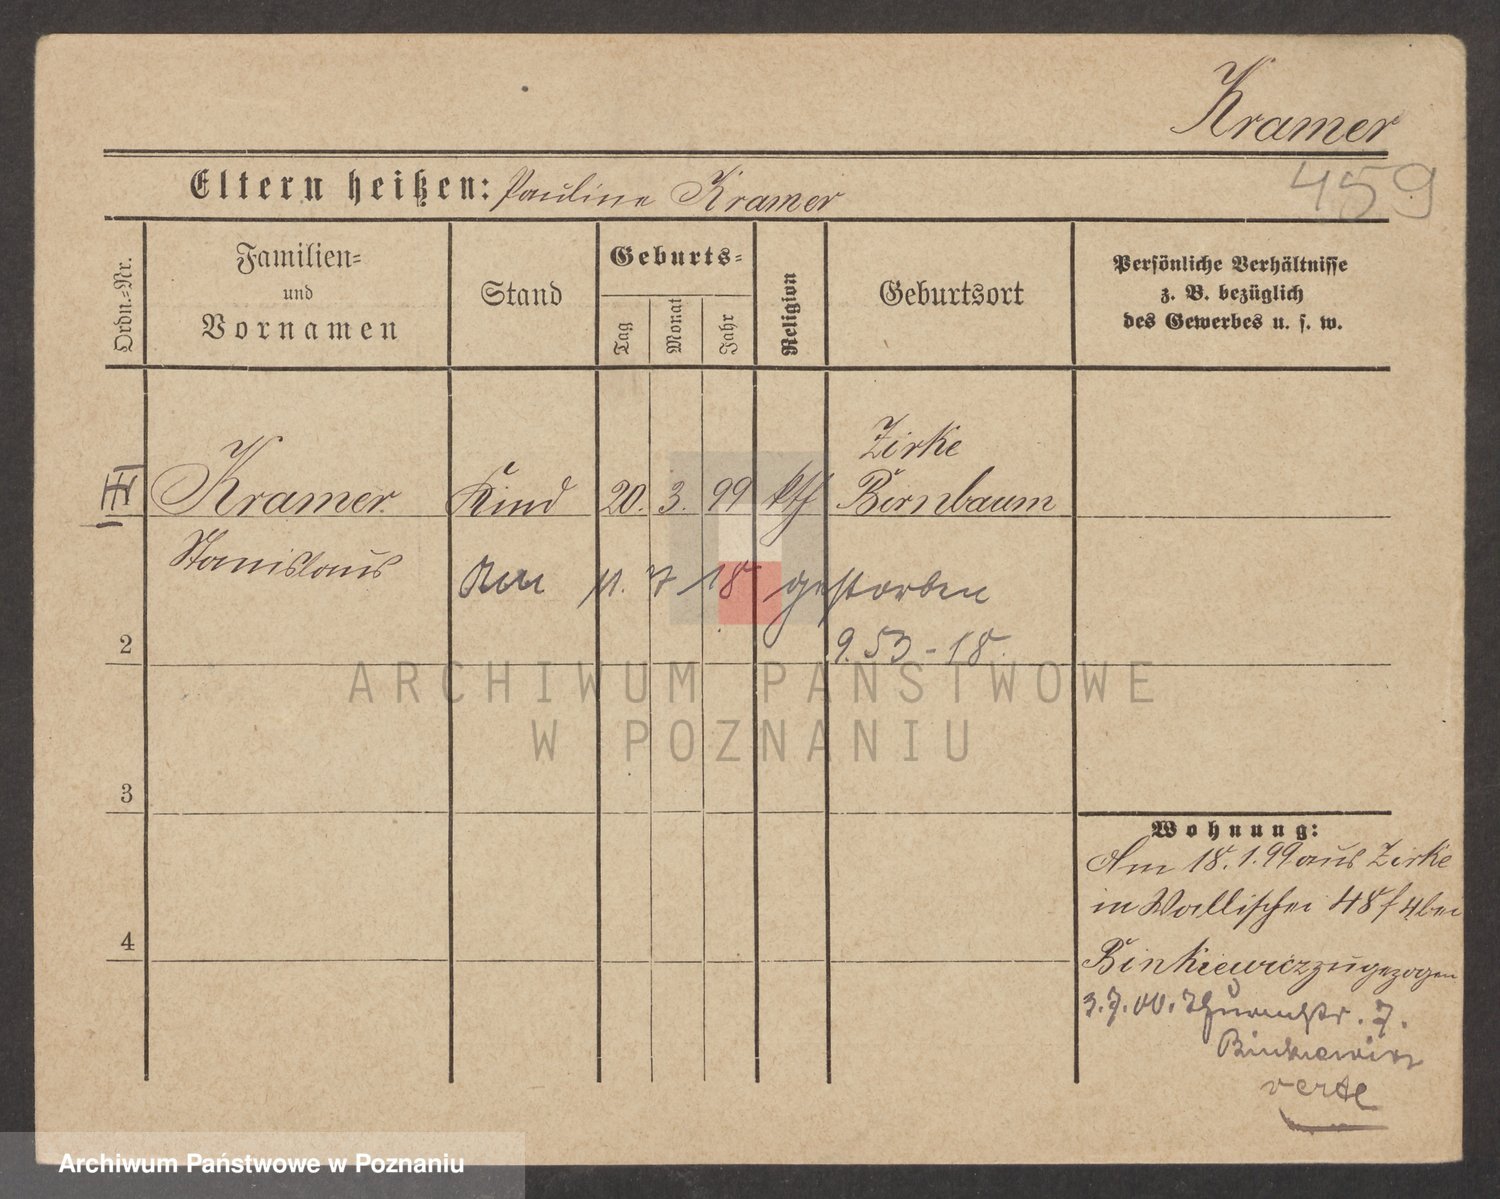 Kramer
459
Eltern heißen: Pauline Kramer
Ordn.-Nr.
Familien-
und
Vornamen
Stand
Geburts-
Tag
Monat
Jahr
Religion
Geburtsort
Persönliche Verhältnisse
z. B. bezüglich
des Gewerbes u. s. w.
Zirke
Kramer Kind 20. 3. 99 kth Birnbaum
Stanislaus
Am 11. 7 18 gestorben
2
9.53-18.
ARCHIWUM PAŃSTWOWE
W POZNANIU
3
Wohnung:
Am 18.1.99 aus Zirke
in Wallischei 48/4 bei
4
Binkiewicz zugezogen
3.7.00. Thurmstr. 7.
Binkiewicz
verte
Archiwum Państwowe w Poznaniu